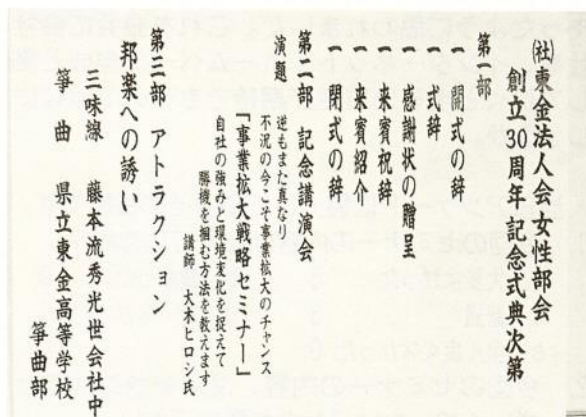 (社)東金法人会女性部会
創立30周年記念式典次第
第一部
一 開式の辞
一 式辞
一 感謝状の贈呈
一 来賓祝辞
一 来賓紹介
一 閉式の辞
第二部 記念講演会
演題 逆もまた真なり
不況の今こそ事業拡大のチャンス
「事業拡大戦略セミナー」
自社の強みと環境変化を捉えて
勝機を掴む方法を教えます
講師 大木ヒロシ氏
第三部 アトラクション
邦楽への誘い
三味線 藤本流秀光世会社中
箏曲 県立東金高等学校
箏曲部